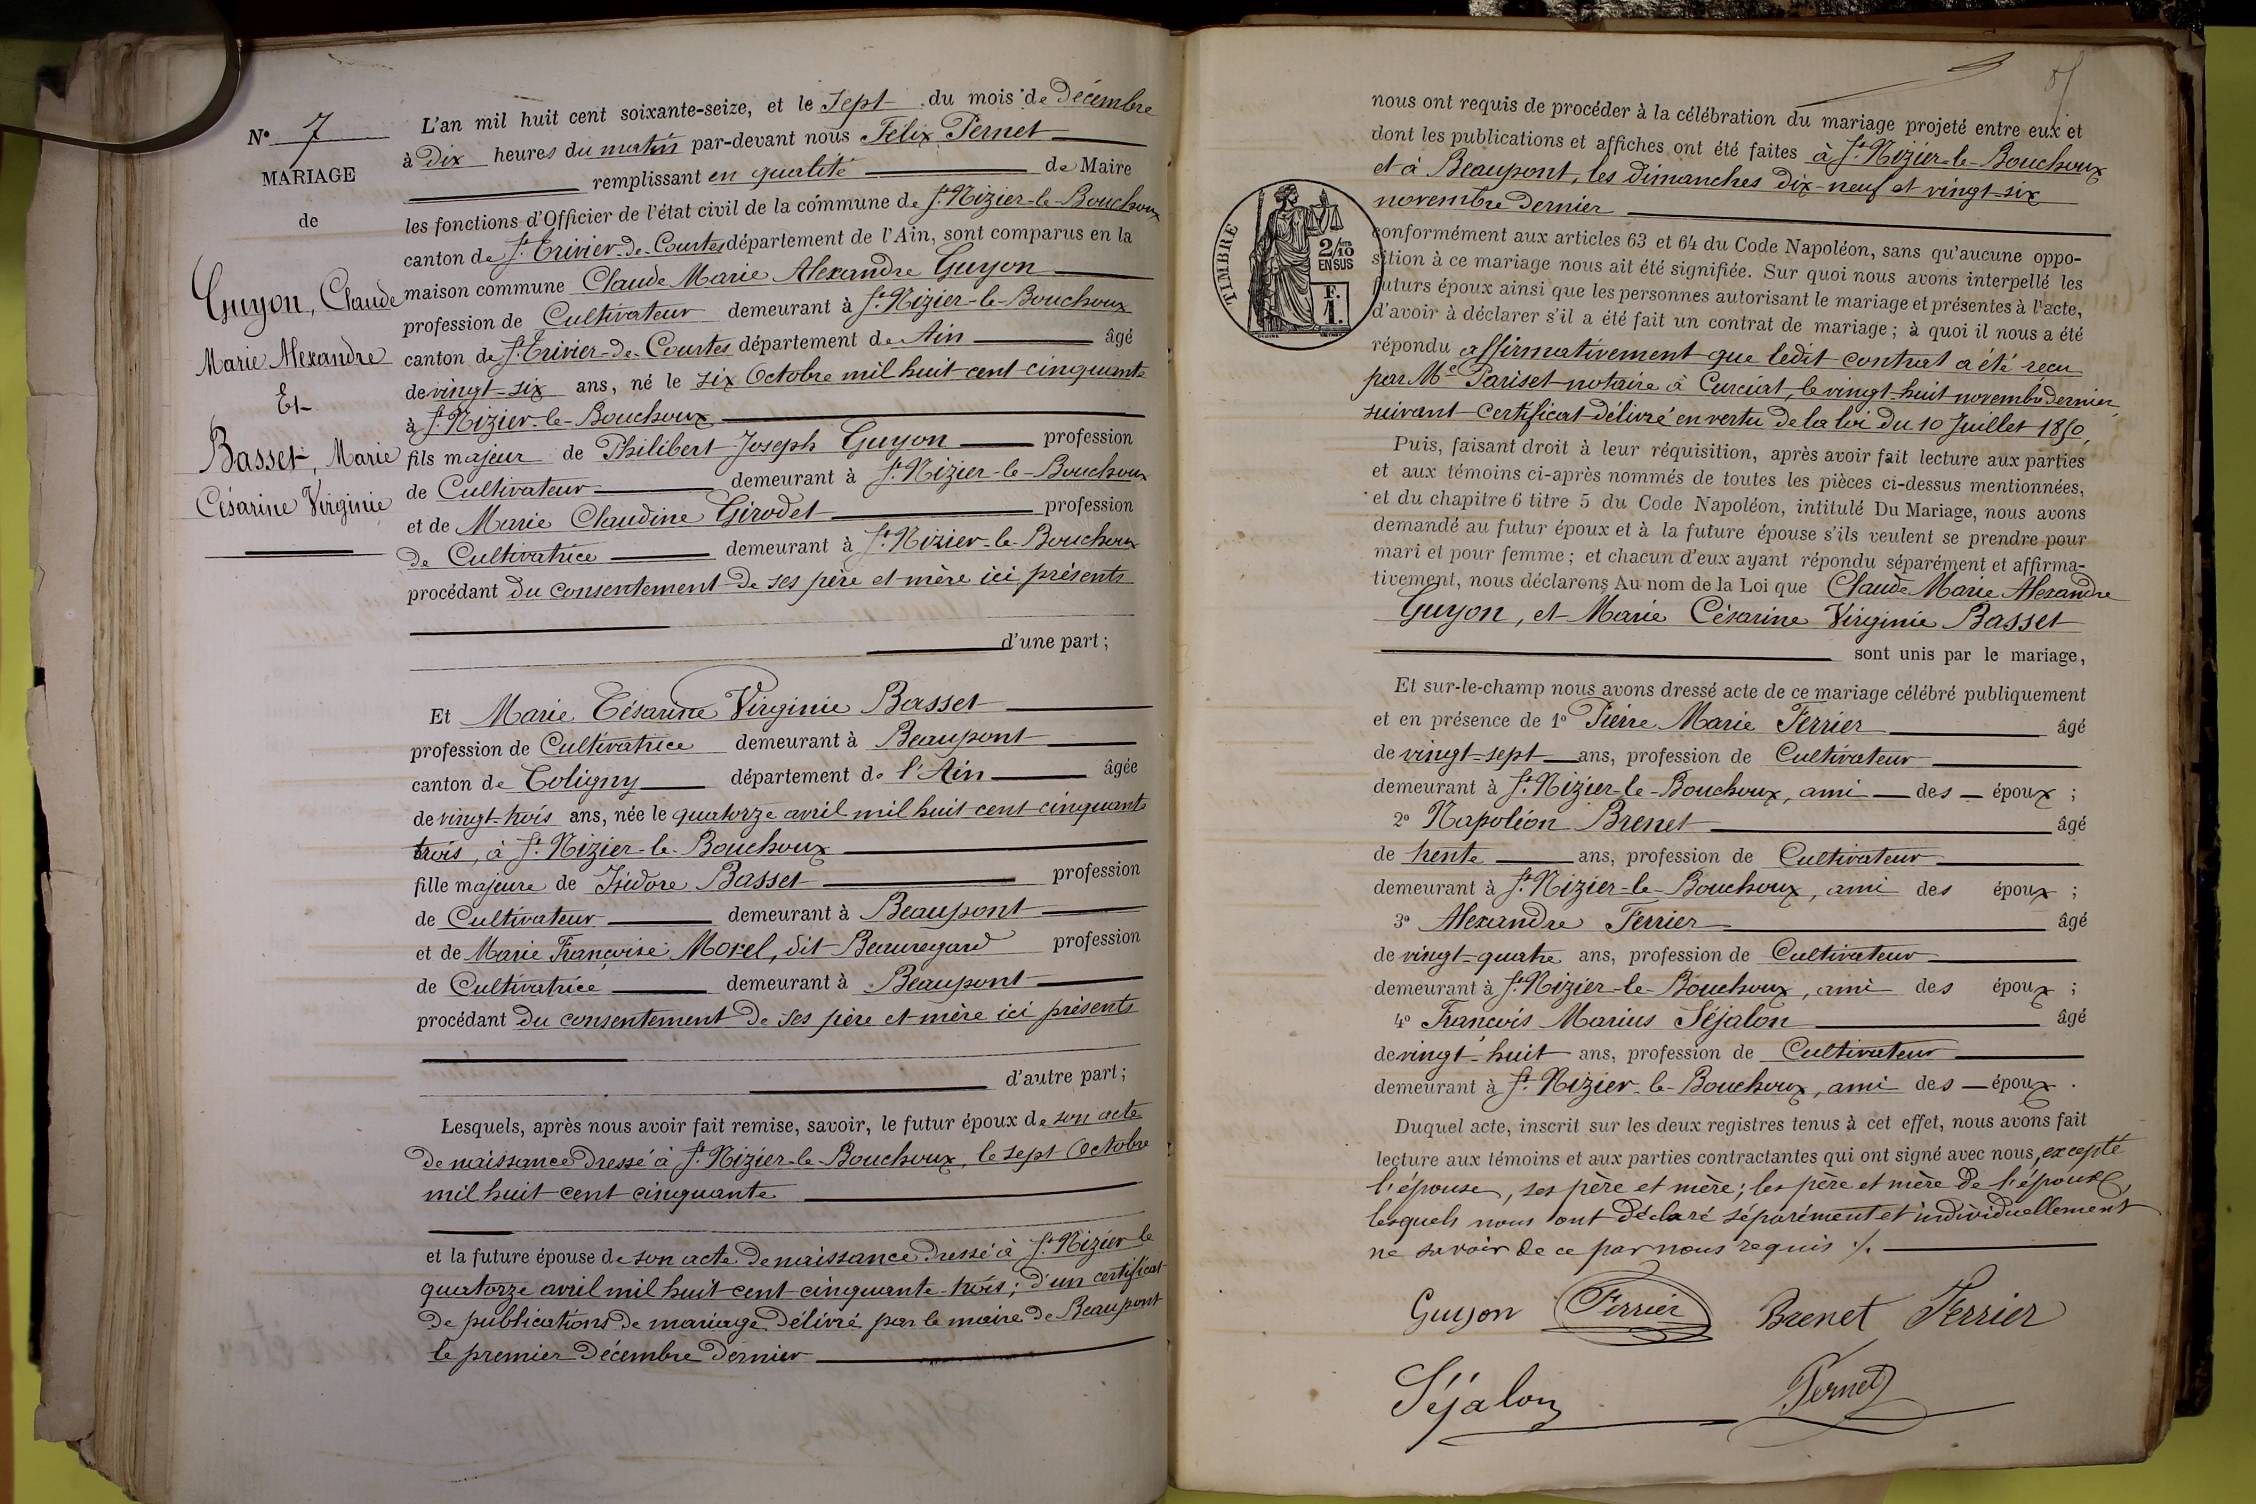 N° 7
MARIAGE
de
Guyon, Claude
Marie Alexandre
Et
Basset, Marie
Césarine Virginie
L'an mil huit cent soixante-seize, et le sept du mois de Décembre
à Dix heures du matin par-devant nous Félix Pernet
remplissant en qualité de Maire
les fonctions d'Officier de l'état civil de la commune de St Nizier-le-Bouchoux
canton de St Trivier-de-Courtes département de l'Ain, sont comparus en la
maison commune Claude Marie Alexandre Guyon
profession de Cultivateur demeurant à St Nizier-le-Bouchoux
canton de St Trivier-de-Courtes département de Ain âgé
de vingt-six ans, né le six Octobre mil huit cent cinquante
à St Nizier-le-Bouchoux
fils majeur de Philibert Joseph Guyon profession
de Cultivateur demeurant à St Nizier-le-Bouchoux
et de Marie Claudine Girodet profession
de Cultivatrice demeurant à St Nizier-le-Bouchoux
procédant du consentement de ses père et mère ici présents
d'une part;
Et Marie Césarine Virginie Basset
profession de Cultivatrice demeurant à Beaupont
canton de Coligny département de l'Ain âgée
de vingt-trois ans, née le quatorze avril mil huit cent cinquante
trois, à St Nizier-le-Bouchoux
fille majeure de Isidore Basset profession
de Cultivateur demeurant à Beaupont
et de Marie Françoise Morel, dit Beauregard profession
de Cultivatrice demeurant à Beaupont
procédant du consentement de ses père et mère ici présents
d'autre part;
Lesquels, après nous avoir fait remise, savoir, le futur époux de son acte
de naissance dressé à St Nizier-le-Bouchoux, le sept Octobre
mil huit cent cinquante
et la future épouse de son acte de naissance dressé à St Nizier le
quatorze avril mil huit cent cinquante-trois; d'un certificat
de publications de mariage délivré par le maire de Beaupont
le premier Décembre dernier
nous ont requis de procéder à la célébration du mariage projeté entre eux et
dont les publications et affiches ont été faites à St Nizier-le-Bouchoux
et à Beaupont, les dimanches dix-neuf et vingt-six
novembre dernier
TIMBRE
2/10
EN SUS
F.
1.
conformément aux articles 63 et 64 du Code Napoléon, sans qu'aucune oppo-
sition à ce mariage nous ait été signifiée. Sur quoi nous avons interpellé les
futurs époux ainsi que les personnes autorisant le mariage et présentes à l'acte,
d'avoir à déclarer s'il a été fait un contrat de mariage; à quoi il nous a été
répondu affirmativement que ledit contrat a été reçu
par Me Pariset notaire à Curciat, le vingt-huit novembre dernier,
suivant certificat délivré en vertu de la loi du 10 Juillet 1850,
Puis, faisant droit à leur réquisition, après avoir fait lecture aux parties
et aux témoins ci-après nommés de toutes les pièces ci-dessus mentionnées,
et du chapitre 6 titre 5 du Code Napoléon, intitulé Du Mariage, nous avons
demandé au futur époux et à la future épouse s'ils veulent se prendre pour
mari et pour femme; et chacun d'eux ayant répondu séparément et affirma-
tivement, nous déclarons Au nom de la Loi que Claude Marie Alexandre
Guyon, et Marie Césarine Virginie Basset
sont unis par le mariage,
Et sur-le-champ nous avons dressé acte de ce mariage célébré publiquement
et en présence de 1° Pierre Marie Ferrier âgé
de vingt-sept ans, profession de Cultivateur
demeurant à St Nizier-le-Bouchoux, ami des époux;
2° Napoléon Brenet âgé
de trente ans, profession de Cultivateur
demeurant à St Nizier-le-Bouchoux, ami des époux;
3° Alexandre Ferrier âgé
de vingt-quatre ans, profession de Cultivateur
demeurant à St Nizier-le-Bouchoux, ami des époux;
4° François Marius Séjalon âgé
de vingt-huit ans, profession de Cultivateur
demeurant à St Nizier-le-Bouchoux, ami des époux.
Duquel acte, inscrit sur les deux registres tenus à cet effet, nous avons fait
lecture aux témoins et aux parties contractantes qui ont signé avec nous, excepté
l'épouse, ses père et mère; les père et mère de l'époux,
lesquels nous ont déclaré séparément et individuellement
ne savoir de ce par nous requis ./.
Guyon Ferrier Brenet Ferrier
Séjalon Pernet